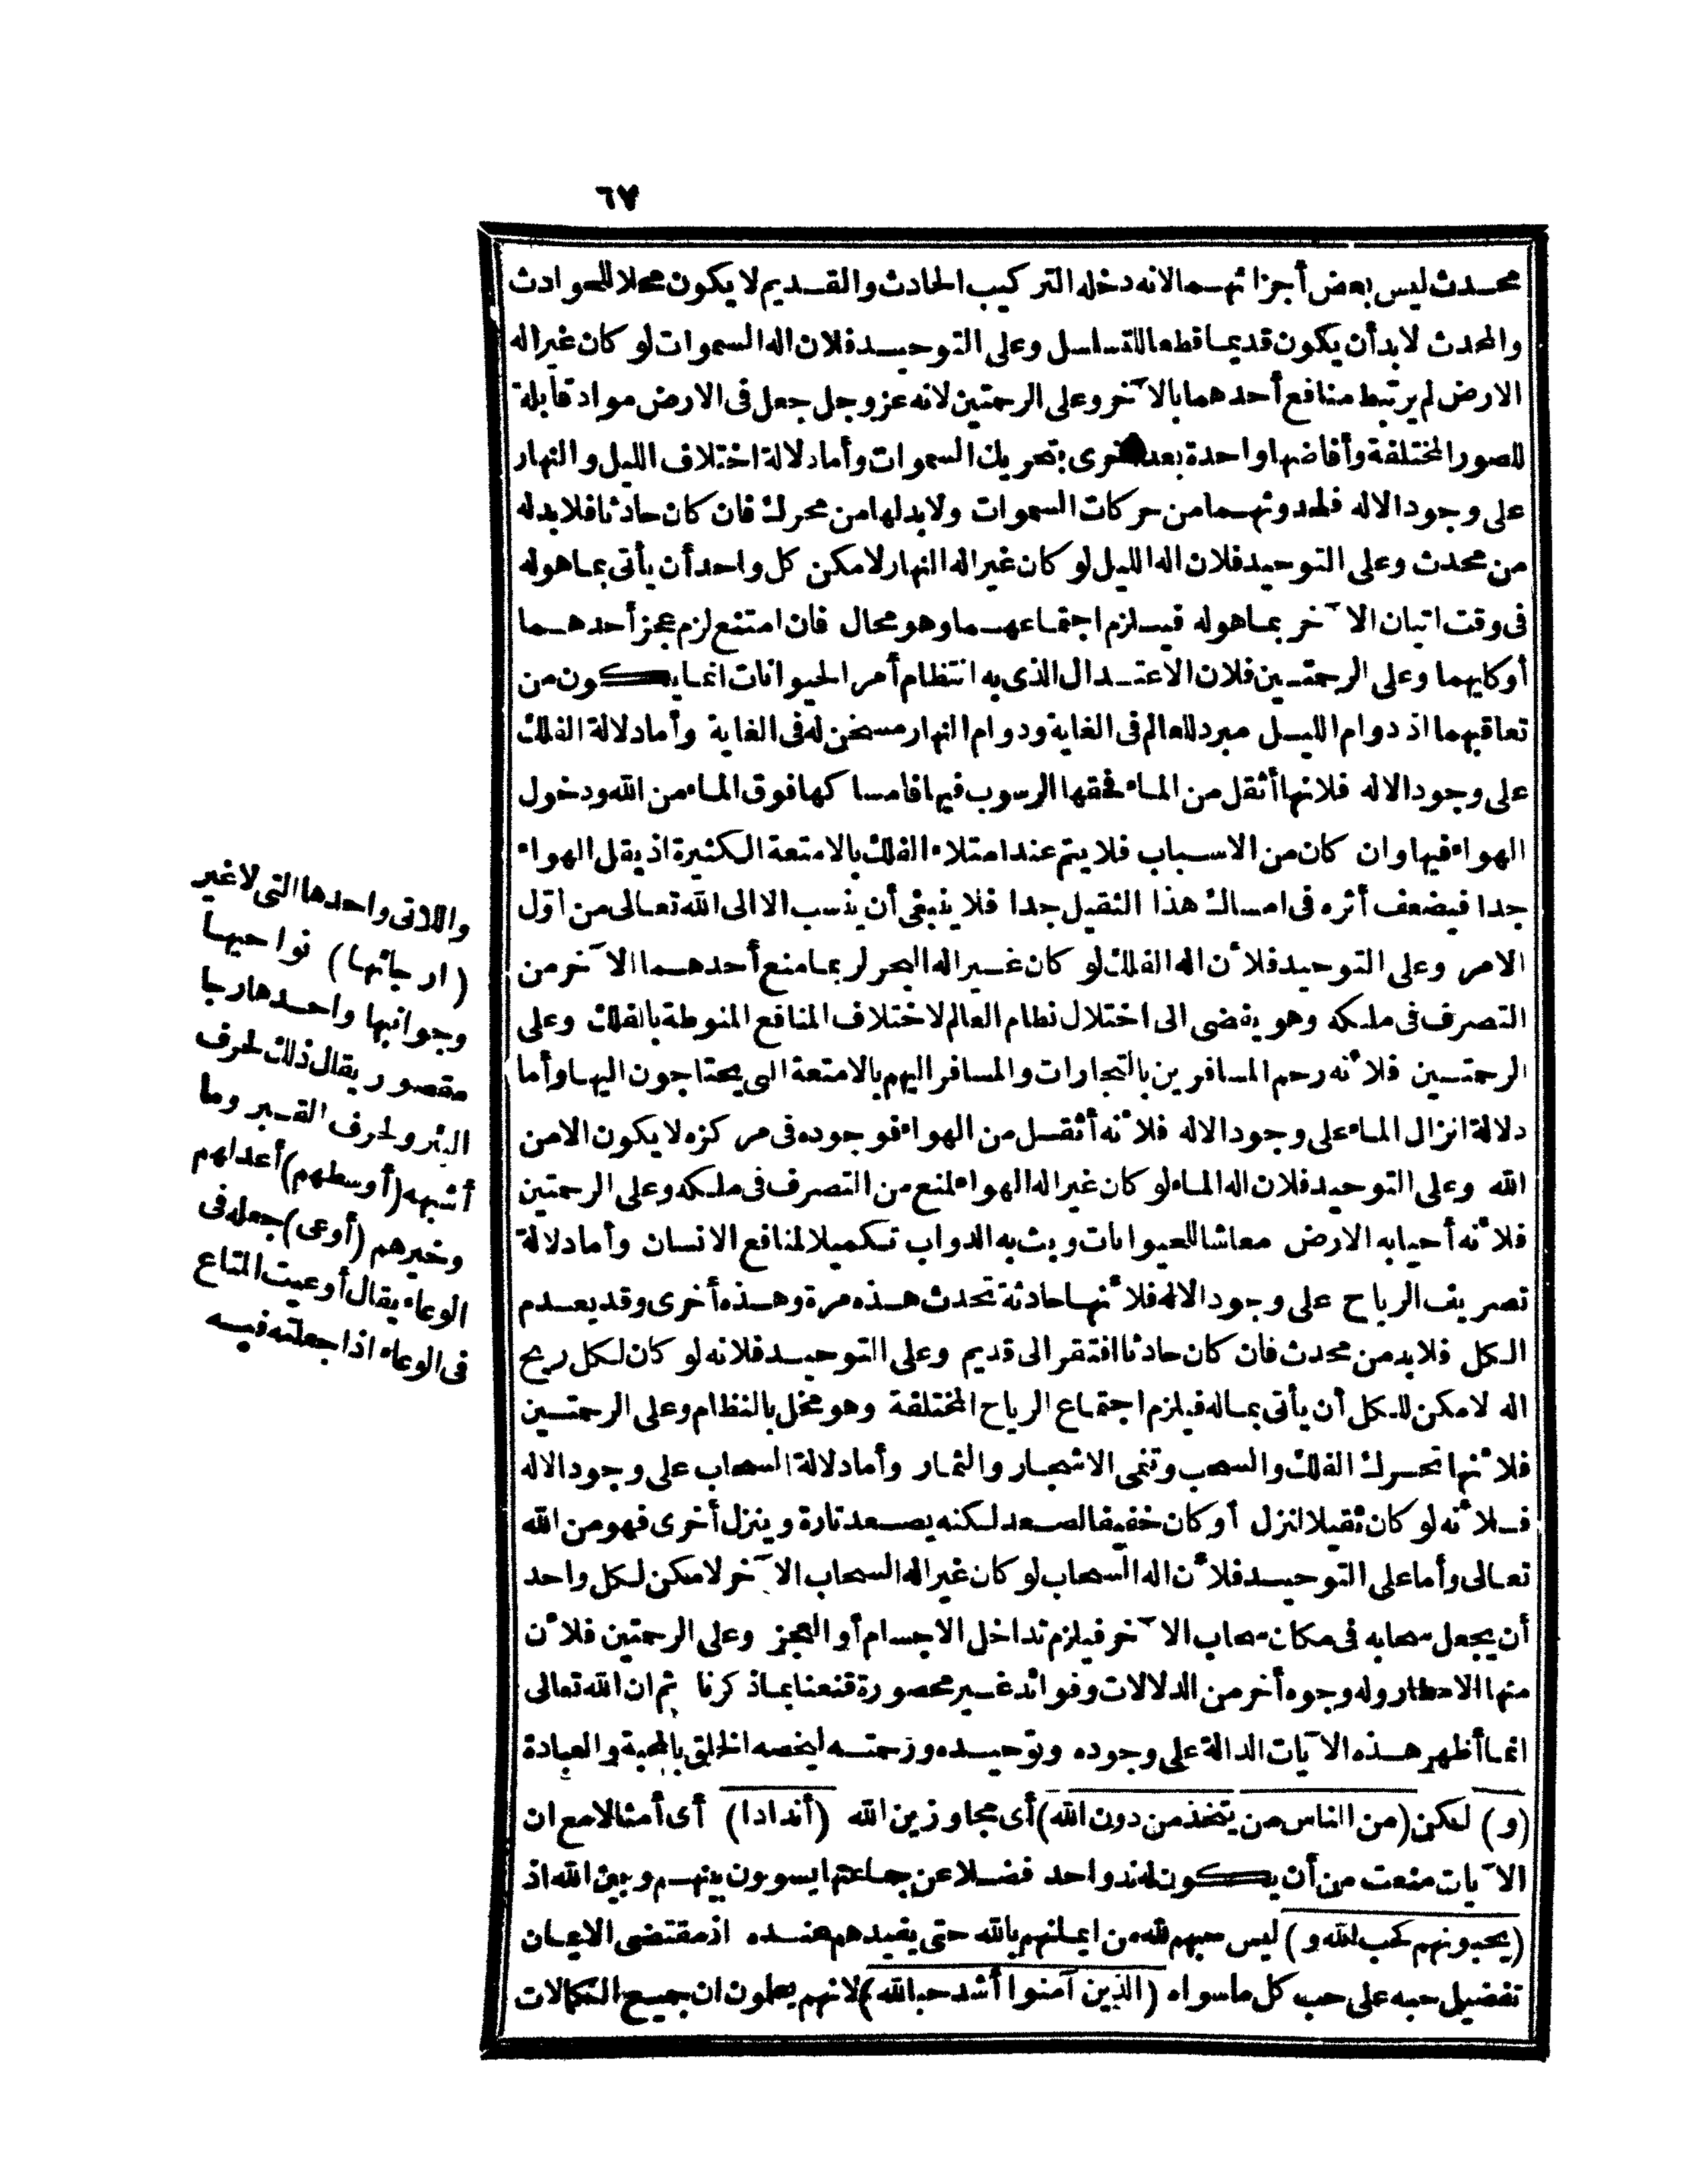 ٦٧
محدث ليس بعض أجزائهما لانه دخله التركيب الحادث والقديم لا يكون محلا للحوادث
والمحدث لابد أن يكون قديما قطعا للتسلسل وعلى التوحيد فلان اله السموات لو كان غير اله
الارض لم يرتبط منافع أحدهما بالآخر وعلى الرحمتين لانه عز وجل جعل فى الارض مواد قابلة
للصور المختلفة وأفاضها واحدة بعد أخرى بتحريك السموات وأما دلالة اختلاف الليل والنهار
على وجود الاله فلحدوثهما من حركات السموات ولابد لها من محرك فان كان حادثا فلابد له
من محدث وعلى التوحيد فلان اله الليل لو كان غير اله النهار لامكن كل واحد أن يأتى بما هو له
فى وقت اتيان الآخر بما هو له فيلزم اجتماعهما وهو محال فان امتنع لزم عجز أحدهما
أو كليهما وعلى الرحمتين فلان الاعتدال الذى به انتظام أمر الحيوانات انما يكون من
تعاقبهما اذ دوام الليل مبرد للعالم فى الغاية ودوام النهار مسخن له فى الغاية وأما دلالة الفلك
على وجود الاله فلانها أثقل من الماء فحقها الرسوب فيه فامساكها فوق الماء من الله ودخول
الهواء فيها وان كان من الاسباب فلا يتم عند امتلاء الفلك بالامتعة الكثيرة اذ يقل الهواء
جدا فيضعف أثره فى امساك هذا الثقيل جدا فلا ينبغى أن ينسب الا الى الله تعالى من أول
الامر وعلى التوحيد فلأن اله الفلك لو كان غير اله البحر لربما منع أحدهما الآخر من
التصرف فى ملكه وهو يفضى الى اختلال نظام العالم لاختلاف المنافع المنوطة بالفلك وعلى
الرحمتين فلأنه رحم المسافرين بالتجارات والمسافر اليهم بالامتعة التى يحتاجون اليها وأما
دلالة انزال الماء على وجود الاله فلأنه أثقل من الهواء فوجوده فى مركزه لا يكون الا من
الله وعلى التوحيد فلان اله الماء لو كان غير اله الهواء لمنع من التصرف فى ملكه وعلى الرحمتين
فلأنه أحيا به الارض معاشا للحيوانات وبث به الدواب تكميلا لمنافع الانسان وأما دلالة
تصريف الرياح على وجود الاله فلأنها حادثة تحدث هذه مرة وهذه أخرى وقد يعدم
الكل فلابد من محدث فان كان حادثا افتقر الى قديم وعلى التوحيد فلانه لو كان لكل ريح
اله لامكن للكل أن يأتى بماله فيلزم اجتماع الرياح المختلفة وهو مخل بالنظام وعلى الرحمتين
فلأنها تحرك الفلك والسحب وتنمى الاشجار والثمار وأما دلالة السحاب على وجود الاله
فلأنه لو كان ثقيلا لنزل أو كان خفيفا لصعد لكنه يصعد تارة وينزل أخرى فهو من الله
تعالى وأما على التوحيد فلأن اله السحاب لو كان غير اله السحاب الآخر لامكن لكل واحد
أن يجعل سحابه فى مكان سحاب الآخر فيلزم تداخل الاجسام أو العجز وعلى الرحمتين فلأن
منها الامطار وله وجوه أخر من الدلالات وفوائد غير محصورة قنعنا بما ذكرنا ثم ان الله تعالى
انما أظهر هذه الآيات الدالة على وجوده وتوحيده ورحمته ليخصه الخلق بالمحبة والعبادة
(و) لكن (من الناس من يتخذ من دون الله) أى مجاوزين الله (أندادا) أى أمثالا مع ان
الآيات منعت من أن يكون له ند واحد فضلا عن جماعتها يسوون بينهم وبين الله اذ
(يحبونهم كحب الله و) ليس حبهم لله من ايمانهم بالله حتى يفيدهم عنده اذ مقتضى الايمان
تفضيل حبه على حب كل ما سواه (الذين آمنوا أشد حبا لله) لانهم يعلمون ان جميع الكمالات
واللاتى واحدها التى لا غير
(ارجائها) نواحيها
وجوانبها واحدها رجا
مقصور يقال ذلك لحرف
البئر ولحرف القبر وما
أشبهه (أوسطهم) أعدلهم
وخيرهم (أوعى) جعله فى
الوعاء يقال أوعيت المتاع
فى الوعاء اذا جعلته فيه